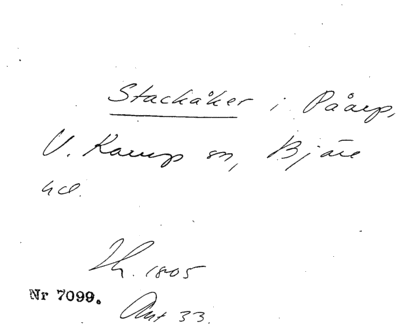 Stackåker i Påarp,
V. Karup sn, Bjäre
hd.
Th. 1805
Nr 7099.
Ant 33.